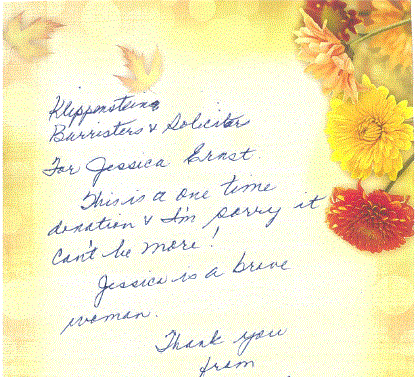 Klippensteins
Barristers & Solicitors
For Jessica Ernst.
This is a one time
donation & I'm sorry it
can't be more!
Jessica is a brave
woman.
Thank you
from